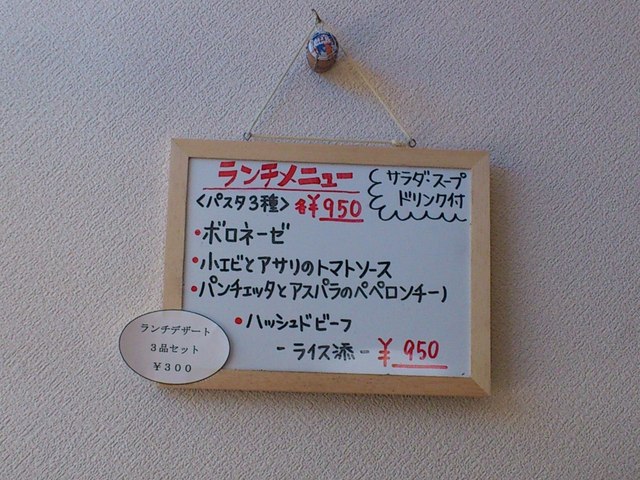 ランチメニュー
サラダ・スープ
ドリンク付
<パスタ3種> 各¥950
・ボロネーゼ
・小エビとアサリのトマトソース
・パンチェッタとアスパラのペペロンチーノ
・ハッシュドビーフ
-ライス添- ¥950
ランチデザート
3品セット
¥300